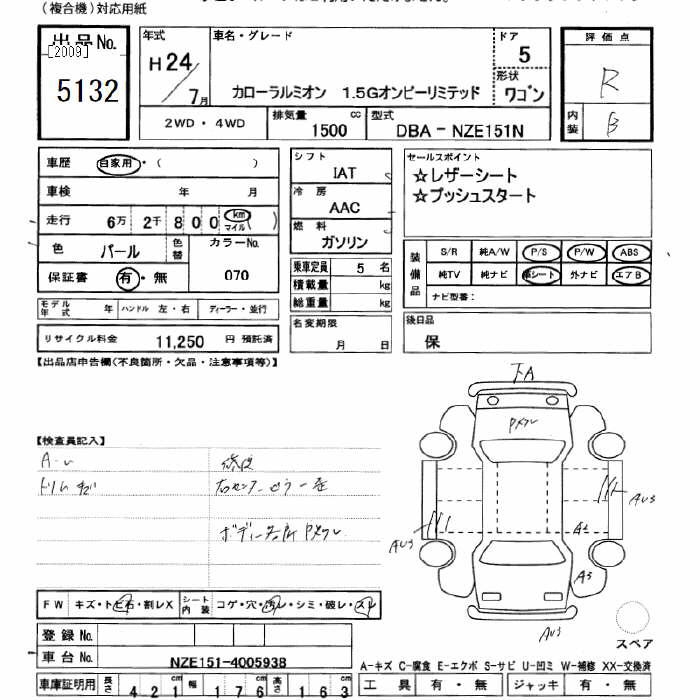 （複合機）対応用紙
出品No.
[2009]
5132
年式
H24/7月
車名・グレード
カローラルミオン 1.5Gオンビーリミテッド
ドア
5
形状
ワゴン
評価点
R
内装
B
2WD・4WD
排気量
1500 cc
型式
DBA-NZE151N
車歴
自家用・（ ）
車検 年 月
走行 6万 2千 8 0 0 km マイル
色 パール 色替 カラーNo.
070
保証書 有・無
シフト
IAT
冷房
AAC
燃料
ガソリン
乗車定員 5 名
積載量 kg
総重量 kg
セールスポイント
☆レザーシート
☆プッシュスタート
装備品
S/R 純A/W P/S P/W ABS
純TV 純ナビ 革シート 外ナビ エアB
ナビ型番：
モデル年式 年 ハンドル 左・右 ディーラー・並行
リサイクル料金 11,250 円 預託済
名変期限
月 日
後日品
保
【出品店申告欄(不良箇所・欠品・注意事項等)】
下A
Pメクレ
【検査員記入】
A-レ
トリムキズ
修復
右センターピラー歪
ボディ各所Pメクレ
AU3
AU3
A2
A3
AU3
FW キズ・トビ石・割レX シート内装 コゲ・穴・汚レ・シミ・破レ・スレ
登録No.
車台No. NZE151-4005938
スペア
A-キズ C-腐食 E-エクボ S-サビ U-凹ミ W-補修 XX-交換済
車庫証明用 長さ 421cm 幅 176cm 高さ 163cm
工具 有・無 ジャッキ 有・無